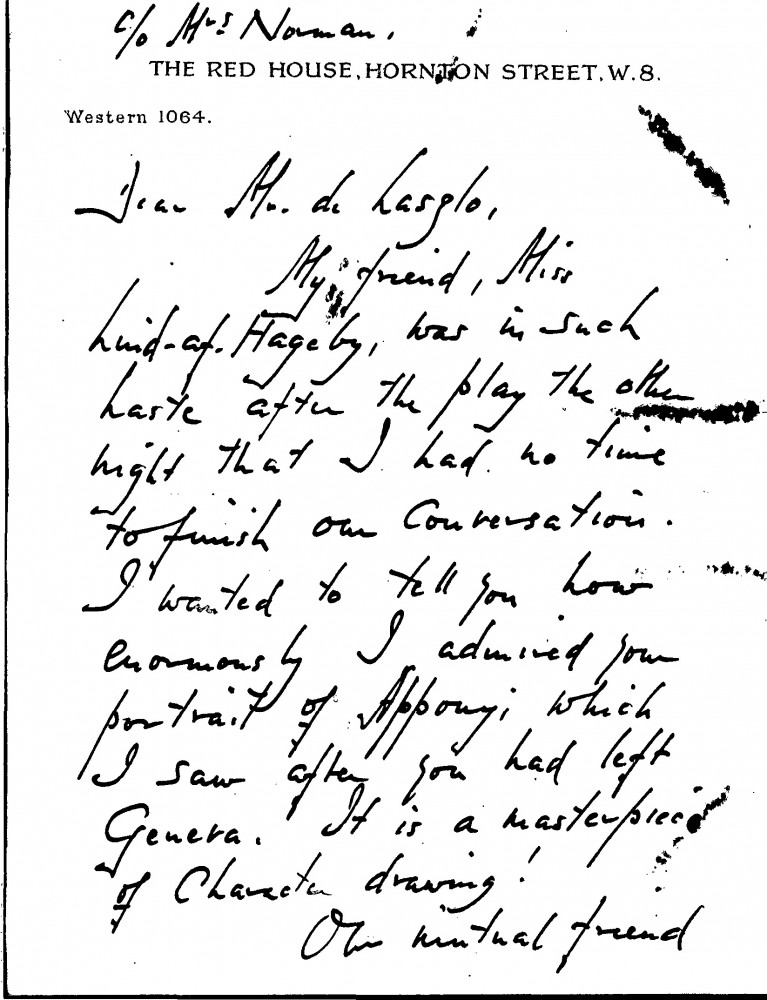 c/o Mrs Norman.
THE RED HOUSE, HORNTON STREET, W.8.
Western 1064.
Dear Mr. de Laszlo,
My friend, Miss
Lind-af-Hageby, was in such
haste after the play the other
night that I had no time
to finish our Conversation.
I wanted to tell you how
enormously I admired your
portrait of Apponyi which
I saw after you had left
Geneva. It is a masterpiece
of Character drawing!
Our mutual friend